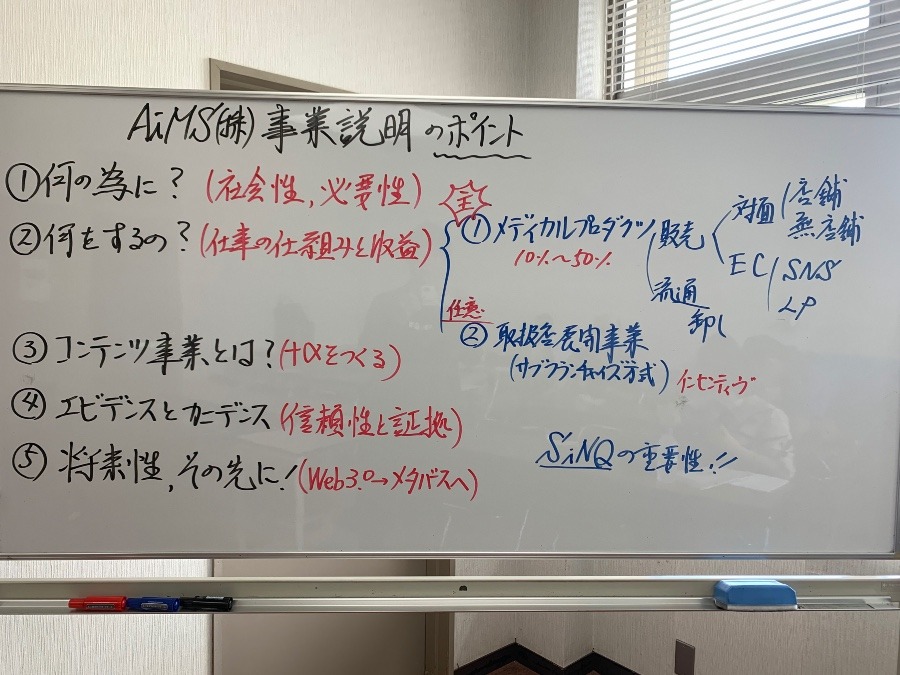 AiMS(株)事業説明のポイント
①何の為に?(社会性,必要性)
②何をするの?(仕事の仕組みと収益)
全
①メディカルプロダクツ
10%〜50%
販売
対面
店舗
無店舗
EC
SNS
LP
流通
卸し
任意
②取扱店展開事業
(サブフランチャイズ方式)
インセンティヴ
③コンテンツ事業とは?(+αをつくる)
④エビデンスと
(信頼性と証拠)
⑤将来性,その先に!(Web3.0→メタバースへ)
SiNQの重要性!!